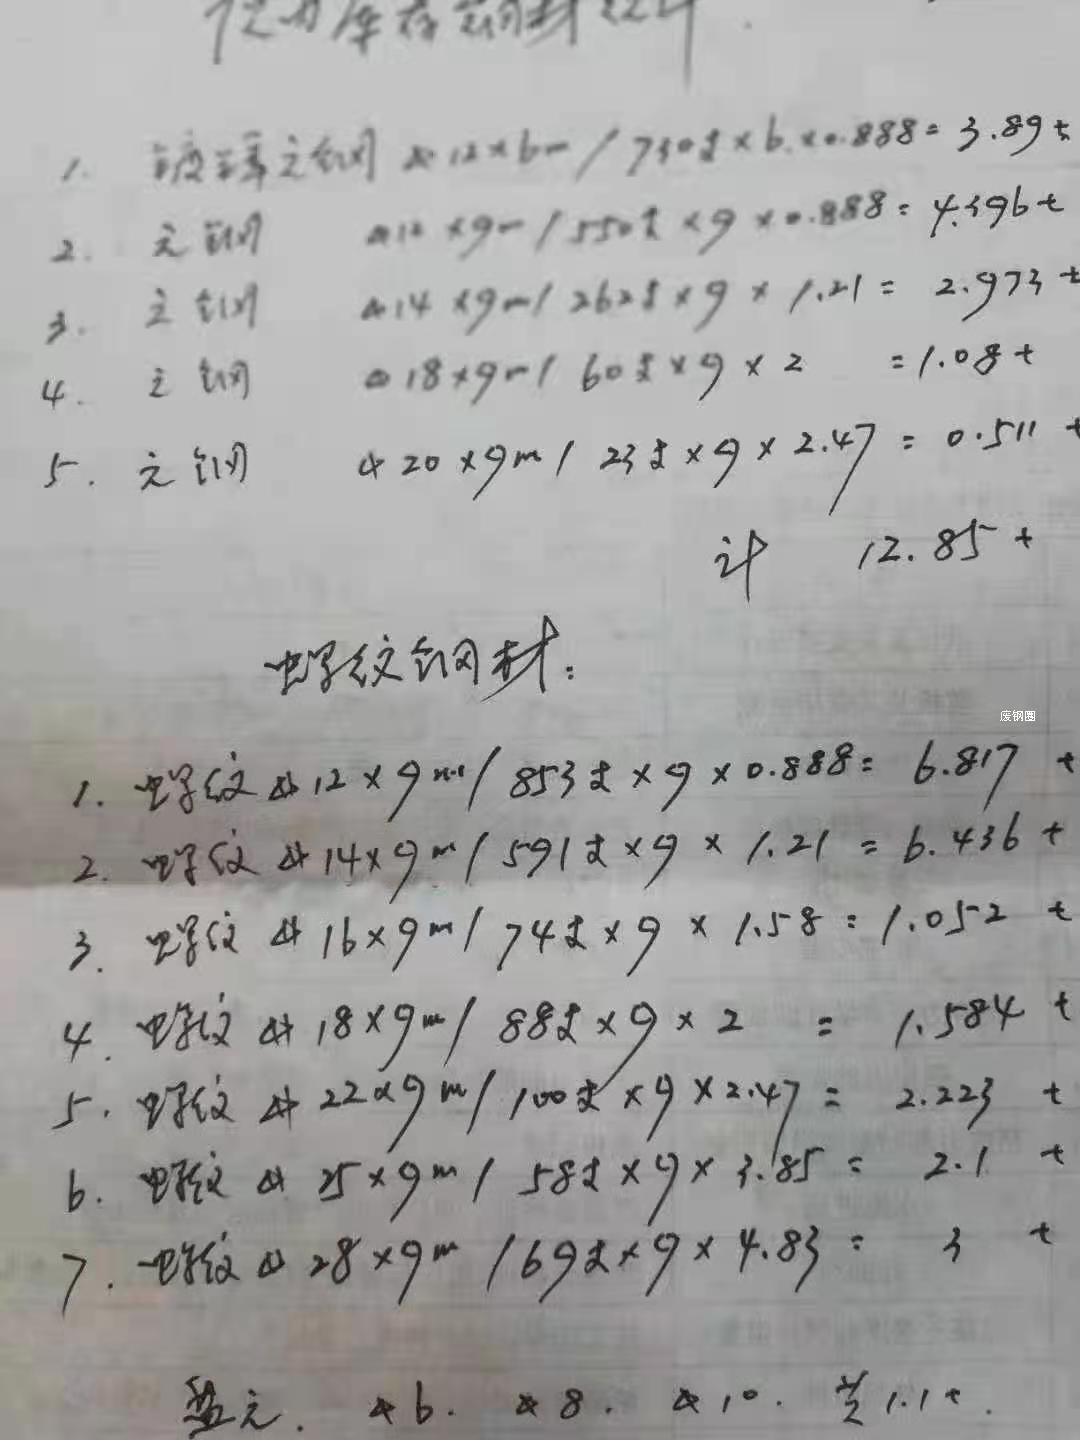 库存钢材统计
1. 镀锌元钢 ⌀12×6m/730支×6×0.888=3.89t
2. 元钢 ⌀12×9m/550支×9×0.888=4.396t
3. 元钢 ⌀14×9m/262支×9×1.21=2.973t
4. 元钢 ⌀18×9m/60支×9×2=1.08t
5. 元钢 ⌀20×9m/23支×9×2.47=0.511t
计 12.85t
螺纹钢材:
废钢圈
1. 螺纹⌀12×9m/853支×9×0.888=6.817t
2. 螺纹⌀14×9m/591支×9×1.21=6.436t
3. 螺纹⌀16×9m/74支×9×1.58=1.052t
4. 螺纹⌀18×9m/88支×9×2=1.584t
5. 螺纹⌀22×9m/100支×9×2.47=2.223t
6. 螺纹⌀25×9m/58支×9×3.85=2.1t
7. 螺纹⌀28×9m/69支×9×4.83=3t
盘元. ⌀6. ⌀8. ⌀10. 共1.1t.